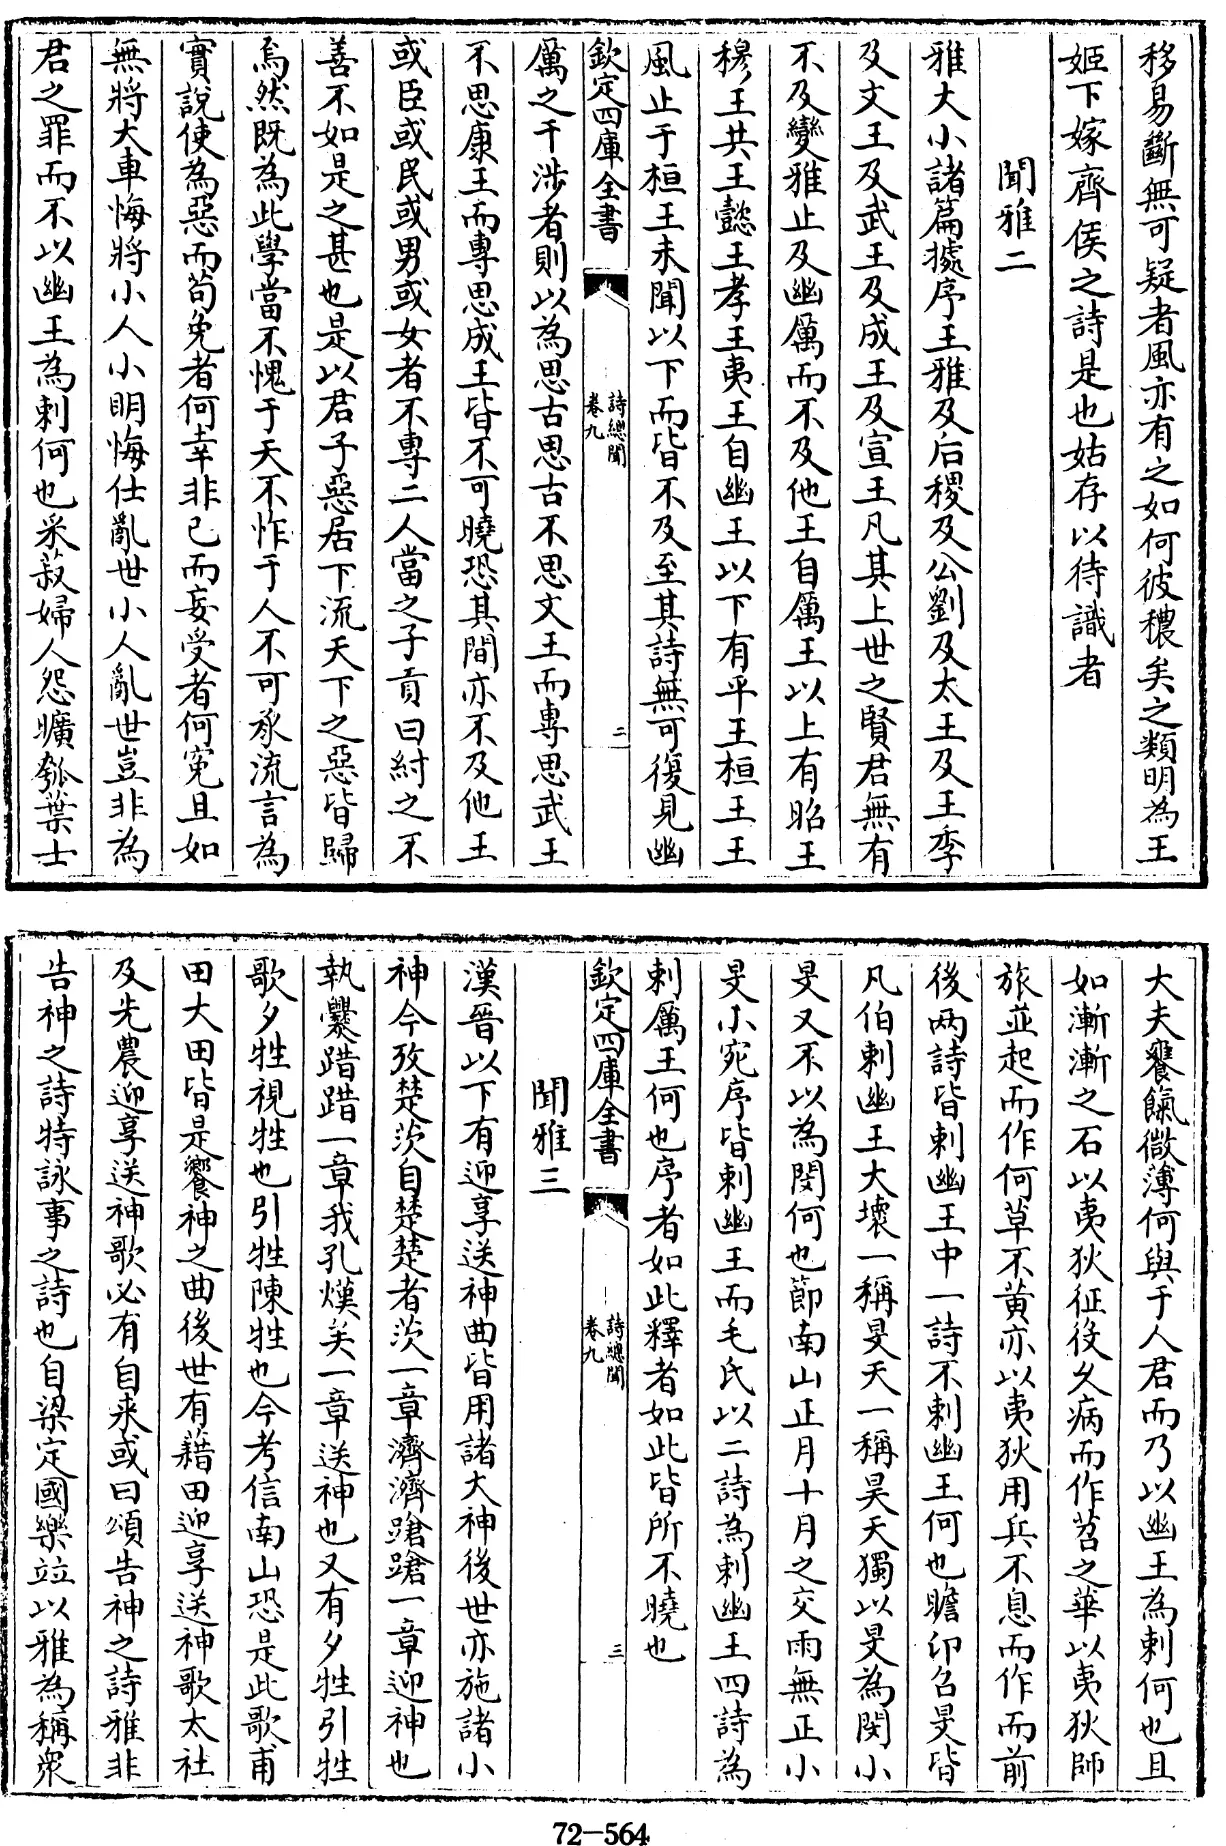 移易斷無可疑者風亦有之如何彼穠矣之類明為王
姬下嫁齊侯之詩是也姑存以待識者
聞雅二
雅大小諸篇據序王雅及后稷及公劉及太王及王季
及文王及武王及成王及宣王凡其上世之賢君無有
不及變雅止及幽厲而不及他王自厲王以上有昭王
穆王共王懿王孝王夷王自幽王以下有平王桓王王
風止于桓王未聞以下而皆不及至其詩無可復見幽
欽定四庫全書
詩總聞
卷九
二
厲之干涉者則以為思古思古不思文王而專思武王
不思康王而專思成王皆不可曉恐其間亦不及他王
或臣或民或男或女者不專二人當之子貢曰紂之不
善不如是之甚也是以君子惡居下流天下之惡皆歸
焉然既為此學當不愧于天不怍于人不可承流言為
實說使為惡而茍免者何幸非已而妄受者何寃且如
無將大車悔將小人小明悔仕亂世小人亂世豈非為
君之罪而不以幽王為刺何也采菽婦人怨曠瓠葉士
大夫饔餼微薄何與于人君而乃以幽王為刺何也且
如漸漸之石以夷狄征役久病而作苕之華以夷狄師
旅並起而作何草不黄亦以夷狄用兵不息而作而前
後两詩皆刺幽王中一詩不刺幽王何也瞻卬召旻皆
凡伯刺幽王大壞一稱旻天一稱昊天獨以旻為閔小
旻又不以為閔何也節南山正月十月之交雨無正小
旻小宛序皆刺幽王而毛氏以二詩為刺幽王四詩為
刺厲王何也序者如此釋者如此皆所不曉也
欽定四庫全書
詩總聞
卷九
三
聞雅三
漢晉以下有迎享送神曲皆用諸大神後世亦施諸小
神今攷楚茨自楚楚者茨一章濟濟蹌蹌一章迎神也
執爨踖踖一章我孔熯矣一章送神也又有夕牲引牲
歌夕牲視牲也引牲陳牲也今考信南山恐是此歌甫
田大田皆是饗神之曲後世有藉田迎享送神歌太社
及先農迎享送神歌必有自来或曰頌告神之詩雅非
告神之詩特詠事之詩也自梁定國樂竝以雅為稱衆
72-564